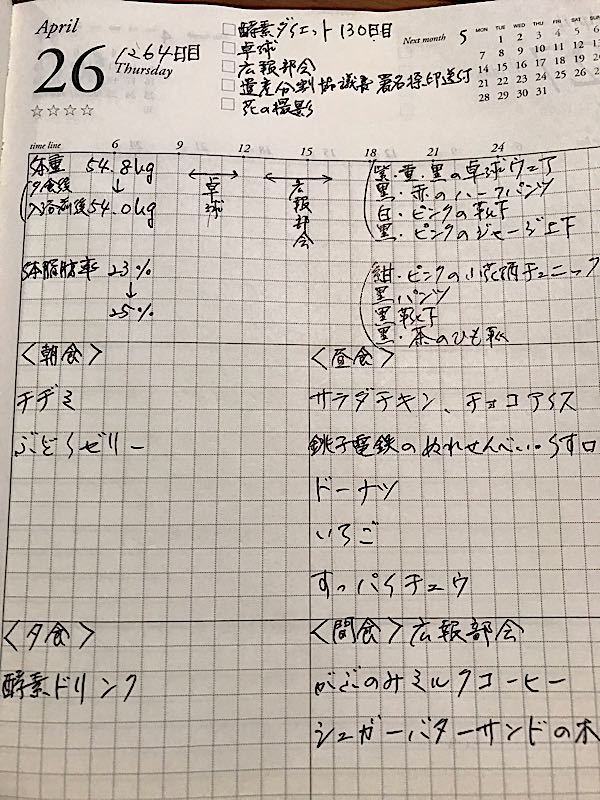 April
26
Thursday
1264日目
酵素ダイエット 130日目
卓球
広報部会
遺産分割協議書 署名捺印送付
花の撮影
Next month 5 MON TUE WED THU FRI SAT SUN
1 2 3 4 5 6
7 8 9 10 11 12
14 15 16 17 18 19
21 22 23 24 25 26
28 29 30 31
time line 6 9 12 15 18 21 24
体重 54.8kg
夕食後 ↓
入浴前後54.0kg
体脂肪率 23%
↓
25%
卓球
広報部会
紫・黄・黒の卓球ウェア
黒・赤のハーフパンツ
白・ピンクの靴下
黒・ピンクのジャージ上下
紺・ピンクの小花柄チュニック
黒パンツ
黒靴下
黒・茶のひも靴
<朝食>
チヂミ
ぶどうゼリー
<昼食>
サラダチキン、チョコアイス
銚子電鉄のぬれせんべい・うす口
ドーナツ
いちご
すっパイチュウ
<夕食>
酵素ドリンク
<間食> 広報部会
がぶのみミルクコーヒー
シュガーバターサンドの木